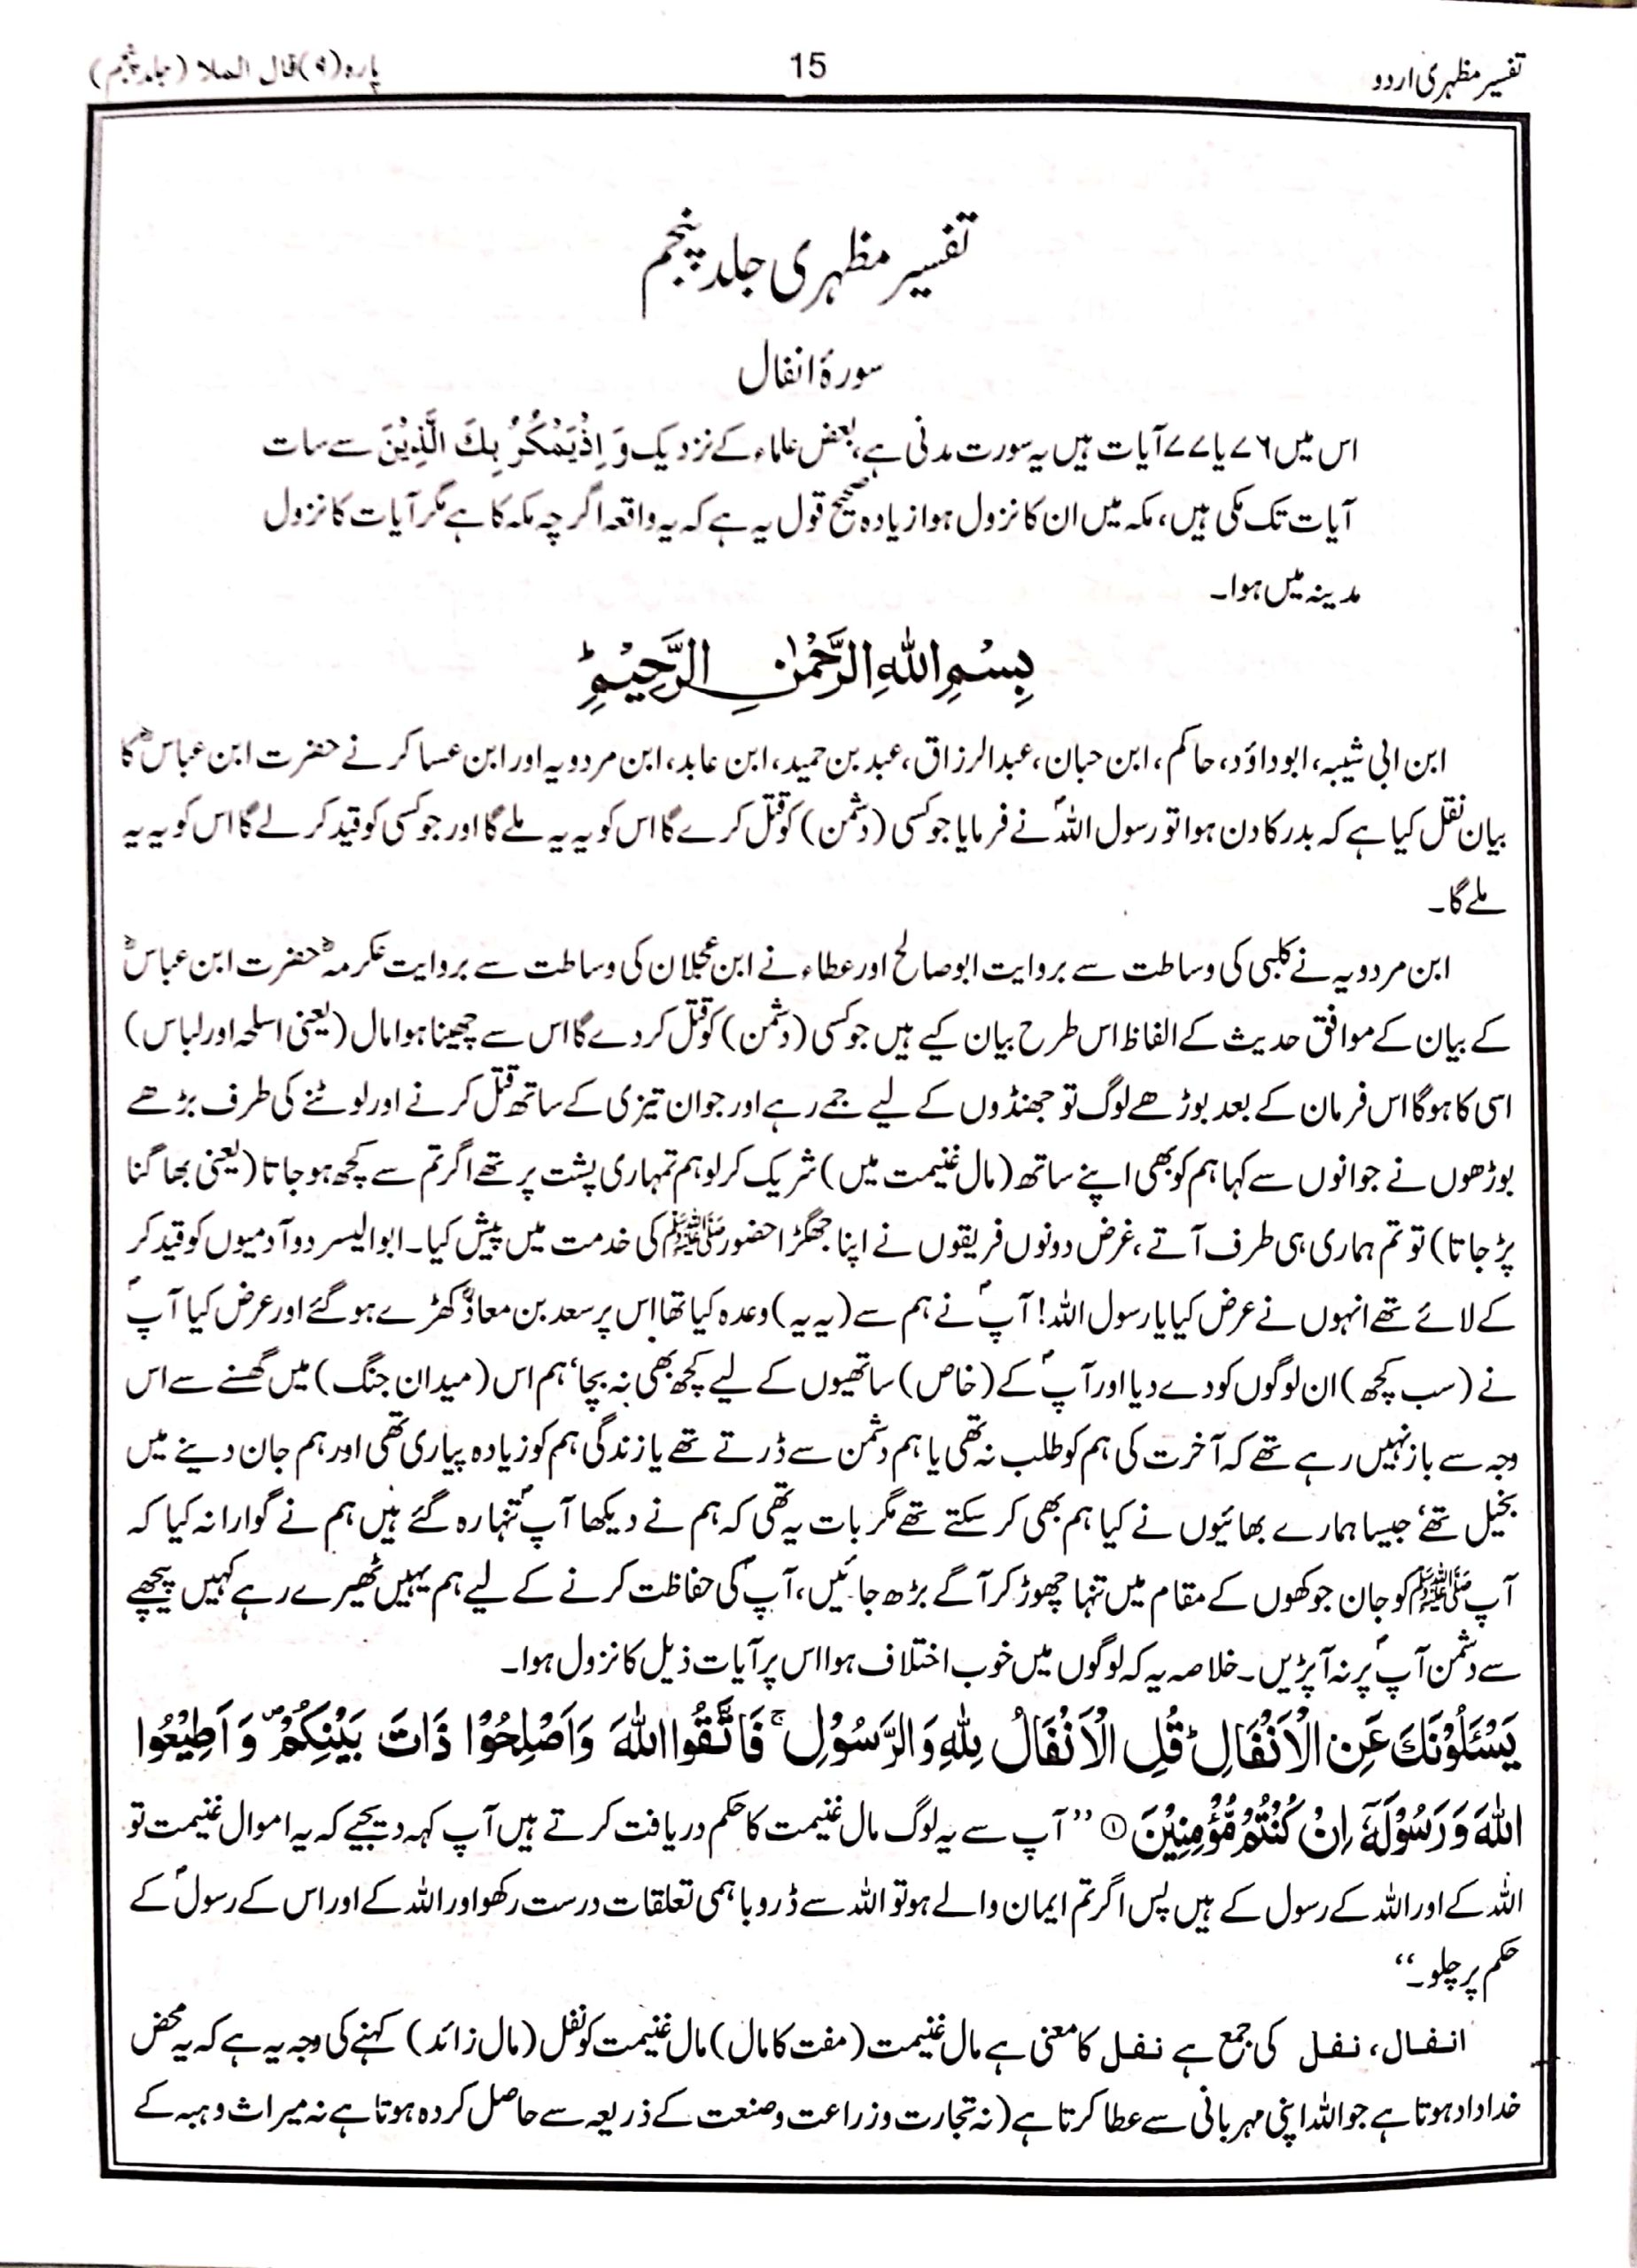 تفسیر مظہری اردو
15
پارہ (۹) قال الملا (جلد پنجم)
تفسیر مظہری جلد پنجم
سورۂ انفال
اس میں ۷۶ یا ۷۷ آیات ہیں یہ سورت مدنی ہے، بعض علماء کے نزدیک وَ اِذْ یَمْکُرُ بِكَ الَّذِیْنَ سے سات
آیات تک مکی ہیں، مکہ میں ان کا نزول ہوا زیادہ صحیح قول یہ ہے کہ یہ واقعہ اگرچہ مکہ کا ہے مگر آیات کا نزول
مدینہ میں ہوا۔
بِسْمِ اللّٰهِ الرَّحْمٰنِ الرَّحِیْمِ ؕ
ابن ابی شیبہ، ابوداؤد، حاکم، ابن حبان، عبدالرزاق، عبد بن حمید، ابن عابد، ابن مردویہ اور ابن عساکر نے حضرت ابن عباسؓ کا
بیان نقل کیا ہے کہ بدر کا دن ہوا تو رسول اللہؐ نے فرمایا جو کسی (دشمن) کو قتل کرے گا اس کو یہ یہ ملے گا اور جو کسی کو قید کر لے گا اس کو یہ یہ
ملے گا۔
ابن مردویہ نے کلبی کی وساطت سے بروایت ابوصالح اور عطاء نے ابن عجلان کی وساطت سے بروایت عکرمہؓ حضرت ابن عباسؓ
کے بیان کے موافق حدیث کے الفاظ اس طرح بیان کیے ہیں جو کسی (دشمن) کو قتل کر دے گا اس سے چھینا ہوا مال (یعنی اسلحہ اور لباس)
اسی کا ہوگا اس فرمان کے بعد بوڑھے لوگ تو جھنڈوں کے لیے جمے رہے اور جوان تیزی کے ساتھ قتل کرنے اور لوٹنے کی طرف بڑھے
بوڑھوں نے جوانوں سے کہا ہم کو بھی اپنے ساتھ (مال غنیمت میں) شریک کر لو ہم تمہاری پشت پر تھے اگر تم سے کچھ ہو جاتا (یعنی بھاگنا
پڑ جاتا) تو تم ہماری ہی طرف آتے، غرض دونوں فریقوں نے اپنا جھگڑا حضورﷺ کی خدمت میں پیش کیا۔ ابوالیسر دو آدمیوں کو قید کر
کے لائے تھے انہوں نے عرض کیا یا رسول اللہ! آپؐ نے ہم سے (یہ یہ) وعدہ کیا تھا اس پر سعد بن معاذؓ کھڑے ہو گئے اور عرض کیا آپؐ
نے (سب کچھ) ان لوگوں کو دے دیا اور آپؐ کے (خاص) ساتھیوں کے لیے کچھ بھی نہ بچا، ہم اس (میدان جنگ) میں گھسنے سے اس
وجہ سے باز نہیں رہے تھے کہ آخرت کی ہم کو طلب نہ تھی یا ہم دشمن سے ڈرتے تھے یا زندگی ہم کو زیادہ پیاری تھی اور ہم جان دینے میں
بخیل تھے، جیسا ہمارے بھائیوں نے کیا ہم بھی کر سکتے تھے مگر بات یہ تھی کہ ہم نے دیکھا آپؐ تنہا رہ گئے ہیں ہم نے گوارا نہ کیا کہ
آپﷺ کو جان جوکھوں کے مقام میں تنہا چھوڑ کر آگے بڑھ جائیں، آپؐ کی حفاظت کرنے کے لیے ہم یہیں ٹھیرے رہے کہیں پیچھے
سے دشمن آپؐ پر نہ آ پڑیں۔ خلاصہ یہ کہ لوگوں میں خوب اختلاف ہوا اس پر آیات ذیل کا نزول ہوا۔
یَسْـَٔلُوْنَكَ عَنِ الْاَنْفَالِ ؕ قُلِ الْاَنْفَالُ لِلّٰهِ وَ الرَّسُوْلِ ۚ فَاتَّقُوا اللّٰهَ وَ اَصْلِحُوْا ذَاتَ بَیْنِكُمْ ۪ وَ اَطِیْعُوا
اللّٰهَ وَ رَسُوْلَهٗۤ اِنْ كُنْتُمْ مُّؤْمِنِیْنَ ① ’’آپ سے یہ لوگ مال غنیمت کا حکم دریافت کرتے ہیں آپ کہہ دیجیے کہ یہ اموال غنیمت تو
اللہ کے اور اللہ کے رسول کے ہیں پس اگر تم ایمان والے ہو تو اللہ سے ڈرو باہمی تعلقات درست رکھو اور اللہ کے اور اس کے رسولؐ کے
حکم پر چلو۔‘‘
انفال، نفل کی جمع ہے نفل کا معنی ہے مال غنیمت (مفت کا مال) مال غنیمت کو نفل (مال زائد) کہنے کی وجہ یہ ہے کہ یہ محض
خداداد ہوتا ہے جو اللہ اپنی مہربانی سے عطا کرتا ہے (نہ تجارت و زراعت و صنعت کے ذریعہ سے حاصل کردہ ہوتا ہے نہ میراث و ہبہ کے